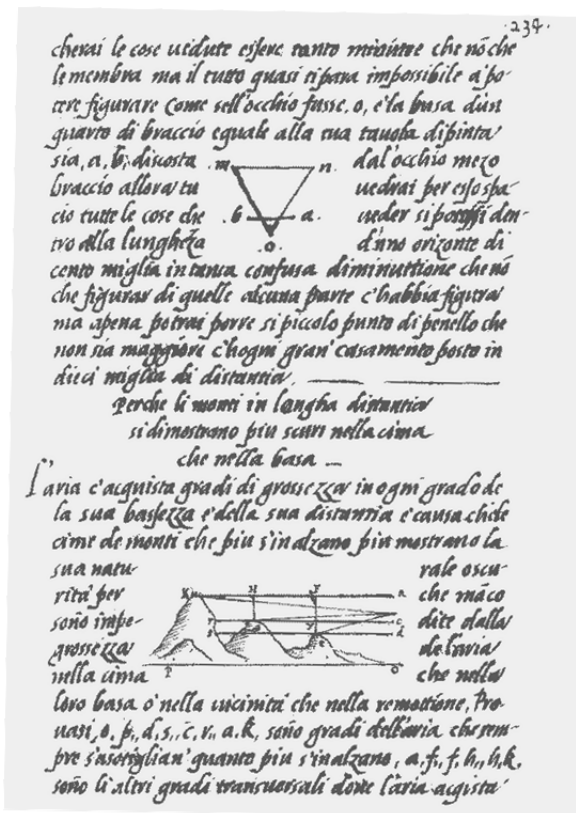 .234.
cherai le cose uedute essere tanto minime che nō che
le membra ma il tutto quasi ti para impossibile a po-
tere figurare Come se ll'occhio fusse, o, e la basa dun
quarto di braccio equale alla tua tauola dipinta
sia, a, b, discosta .m n. dal occhio mezo
braccio allora tu uedrai per esso spa-
cio tutte le cose che .b a. ueder si den-
tro alla lunghezza .o. d'uno orizonte di
cento miglia in tanta confusa diminuttione che nō
che figurar di quelle alcuna parte c'habbia figura
ma apena potrai porre si piccolo punto di penello che
non sia maggiore c'hogni gran' casamento posto in
dieci miglia di distantia.
Perche li monti in longha distantia
si dimostrano piu scuri nella cima
che nella basa
L'aria c'acquista gradi di grossezza in ogni grado de
la sua bassezza e della sua distantia e causa che le
cime de monti che piu s'inalzano piu mostrano la
sua natu- rale oscu-
rità per che māco
sono impe- dite dalla
grossezza de l'aria
nella cima che nella
loro basa o' nella uicinità che nella remottione, Pro-
uasi, o, p, d, s, c, r, a, k, sono gradi dell'aria che sem-
pre s'asotiglian' quanto piu s'inalzano, a, f, f, h, h, k,
sono li altri gradi transuersali doue l'aria acqista